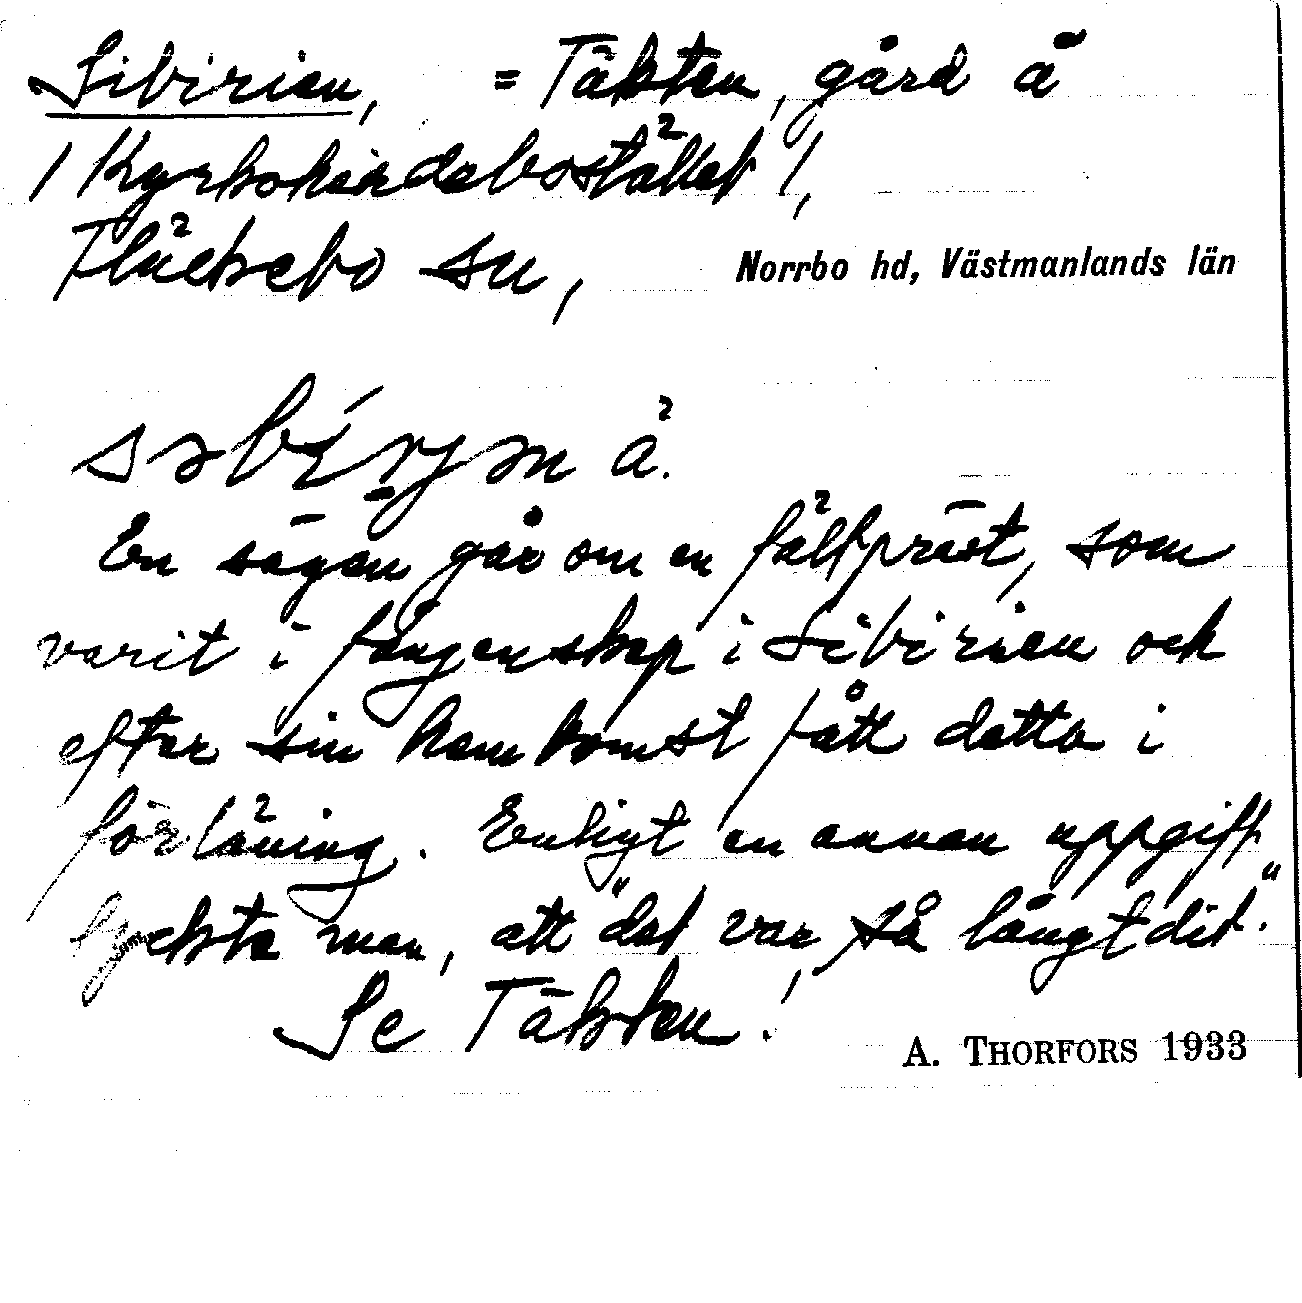 Sibirien, = Täkten, gård å
/ Kyrkoherdebostället /,
Fläckebo sn, Norrbo hd, Västmanlands län
å.
En sägen går om en fältpräst, som
varit i fångenskap i Sibirien och
efter sin hemkomst fått detta i
förläning. Enligt en annan uppgift
tyckte man, att "det var så långt dit."
Se Täkten!
A. THORFORS 1933